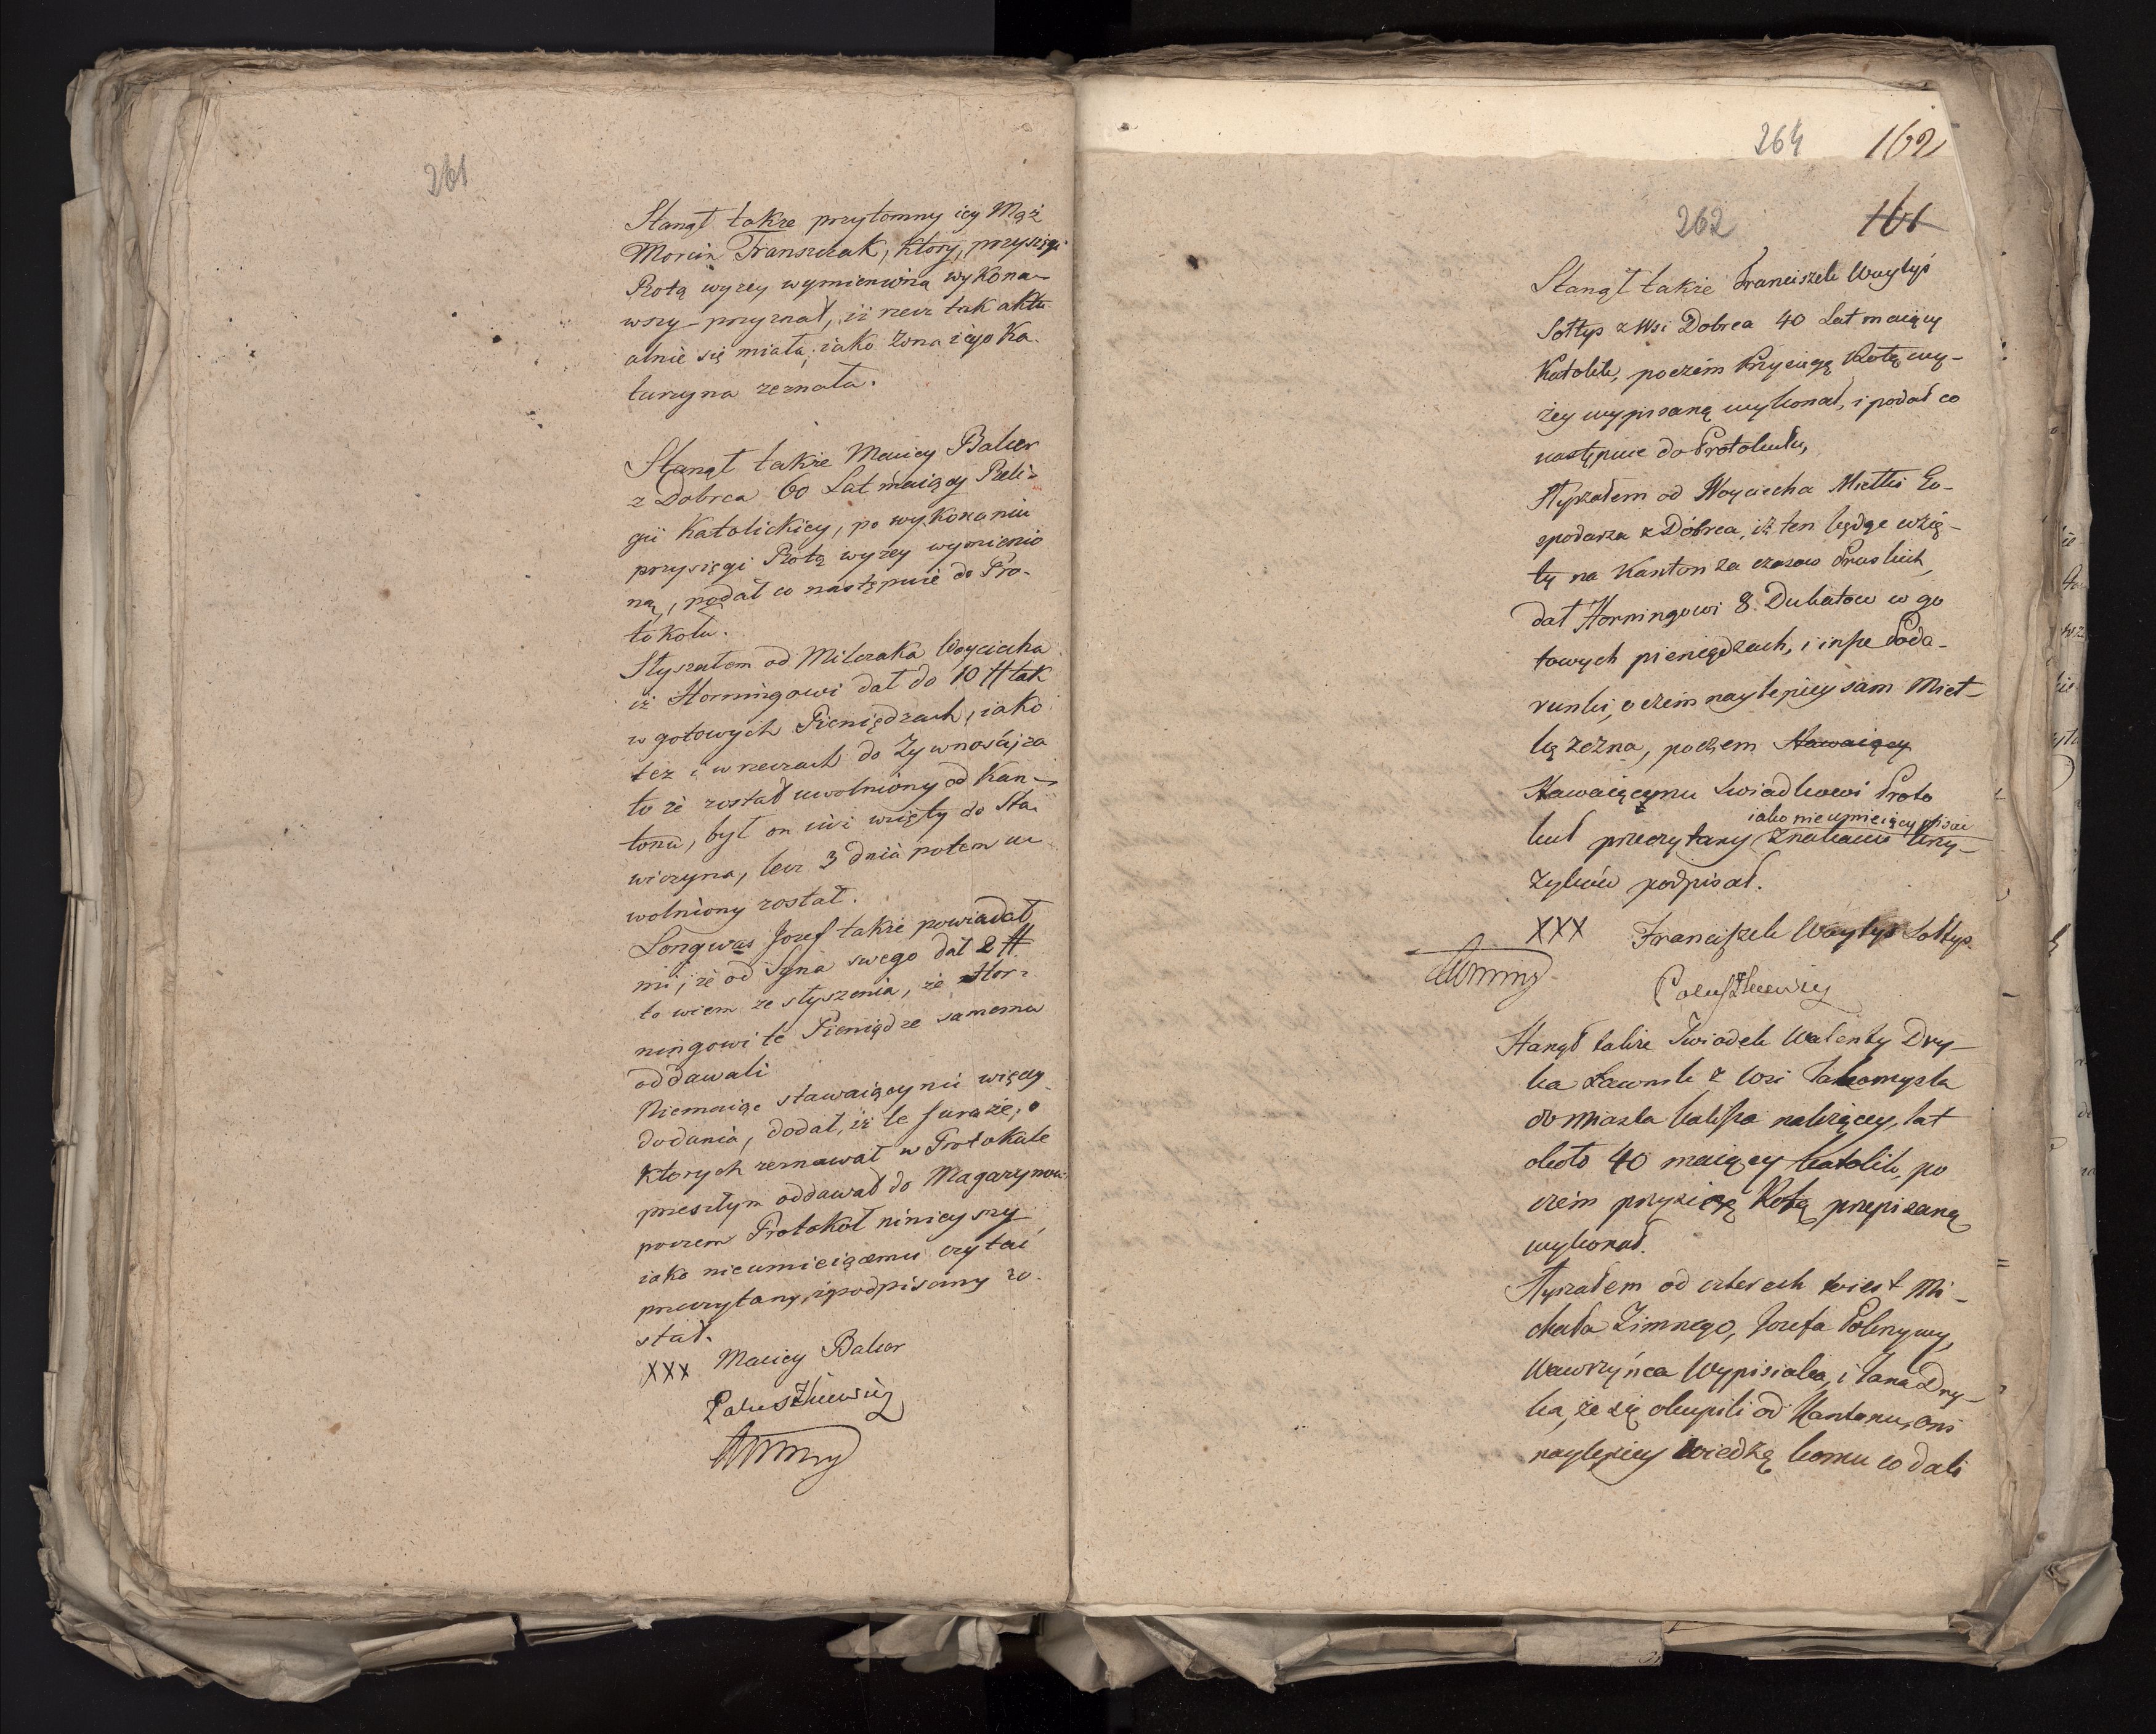 261
Stanął takze przytomny iey Mąż
Morcin Franszczak, ktory, przysięgi
Rotą wyzey wymienioną wykona-
wszy przyznał, iż rzecz tak aktu
alnie się miała, iako Zona iego Ka-
tarzyna zeznała.
Stanął takze Maciey Balcer
z Dobrca 60 Lat maiący Reli-
gii Katolickiey, po wykonaniu
przysięgi Rotą wyzey wymienio
ną, podał co następuie do Pro-
tokołu.
Słyszałem od Milczaka Woyciecha
iż Horningowi dał do 10 # tak
w gotowych Pieniędzach, iako
tez i w rzeczach do Zywnosci, za
to ze został uwolniony od Kan-
tonu, był on iuż wzięty do Sta-
wiczyna, lecz 3 dnia potem u-
wolniony został.
Longwas Jozef takze powiadał
mi, ze od syna swego dał 2 #.
to wiem ze słyszenia, ze Hor-
ningowi te Pieniądze samemu
oddawali
Niemaiąc stawaiący nic więcey
dodania, dodał, iż te furaże, o
ktorych zeznawał w Protokule
przeszłym oddawał do Magazynow
poczem Protokół ninieyszy
iako nieumieiącemu czytać
przeczytany, i podpisany zo-
stał.
XXX Maciey Balcer
264 162
262 161
Stanął także Franciszek Woytyś
Sołtys z Wsi Dobrca 40 Lat maiący
Katolik, poczém Przysięgę Rotą wy-
żey wypisaną wykonał, i podał co
następuie do Protokułu,
Słyszałem od Woyciecha Mietki Go-
spodarza z Dobrca, iż ten będąc wzię-
ty na Kanton za czasow Pruskich,
dał Horningowi 8. Dukatow w go
towych pieniędzach, i inße Poda-
runki, o czém naylepiey sam Miet-
ką zezna, poczem Stawaiący
Stawaiącemu Swiadkowi Proto
iako nieumieiący pisać
kuł przeczytany znakami krzy-
żyków podpisał.
XXX Franciszek Woytyś Sołtys
Stanął takze Swiadek Walenty Dry-
ka Ławnik z Wsi
do Miasta Kalisza należącey, lat
około 40 maiący Katolik, po
czém przysięgę Rotą przepisaną
wykonał.
Słyszałem od czterech Mi-
chała Zimnego, Jozefa
Wawrzyńca i Jana Dry-
ka, że się okupili od Kantonu, oni
naylepiey wiedzą komu co dali